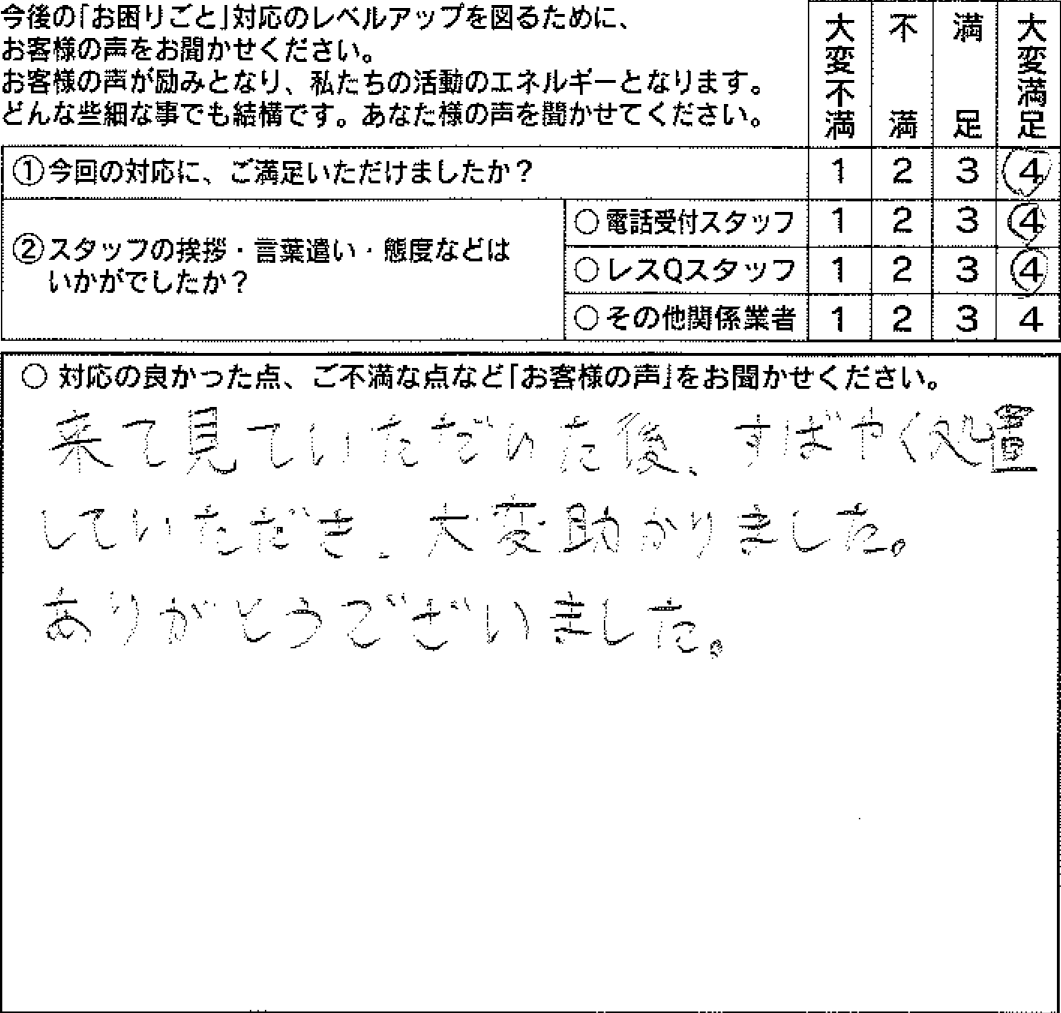 今後の｢お困りごと｣対応のレベルアップを図るために、
お客様の声をお聞かせください。
お客様の声が励みとなり、私たちの活動のエネルギーとなります。
どんな些細な事でも結構です。あなた様の声を聞かせてください。
大変不満 不満 満足 大変満足
①今回の対応に、ご満足いただけましたか? 1 2 3 4
②スタッフの挨拶・言葉遣い・態度などは
いかがでしたか?
○電話受付スタッフ 1 2 3 4
○レスQスタッフ 1 2 3 4
○その他関係業者 1 2 3 4
○ 対応の良かった点、ご不満な点など｢お客様の声｣をお聞かせください。
来て見ていただいた後、すばやく処置
していただき、大変助かりました。
ありがとうございました。